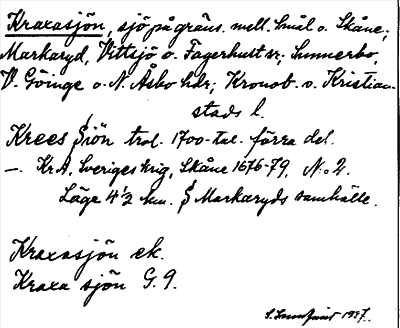 Kraxasjön, sjö på gräns. mell. Smål. o. Skåne;
Markaryd, Vittsjö o. Fagerhult sr; Sunnerbo,
V. Göinge o. N. Åsbo hdr; Kronob. o. Kristian-
stads l.
Krees Siön trol. 1700-tal. förra del.
—. Kr A, Sveriges krig, Skåne 1676-79, N:o 2.
Läge 4 1/2 km. S Markaryds samhälle.
Kraxasjön ek.
Kraxa sjön G. 9.
1937.